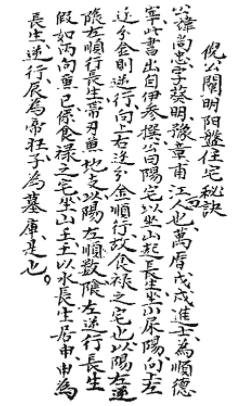 倪公開明陽盤住宅秘訣
公諱尚忠字葵明豫章甫江人也萬曆戊戌進士為順德
宰此書出自伊參撰公曰陽宅以坐山起長生坐小屎陽向上左
邊分金則逆行向上右邊分金順行故食祿之宅也以陽左逆
陰左順行長生帶刃並地支以陽左順數陰左逆行長生
假如丙向並巳係食祿之宅坐山壬土以水長生居申申為
長生逆行辰為帝旺子為墓庫是也。